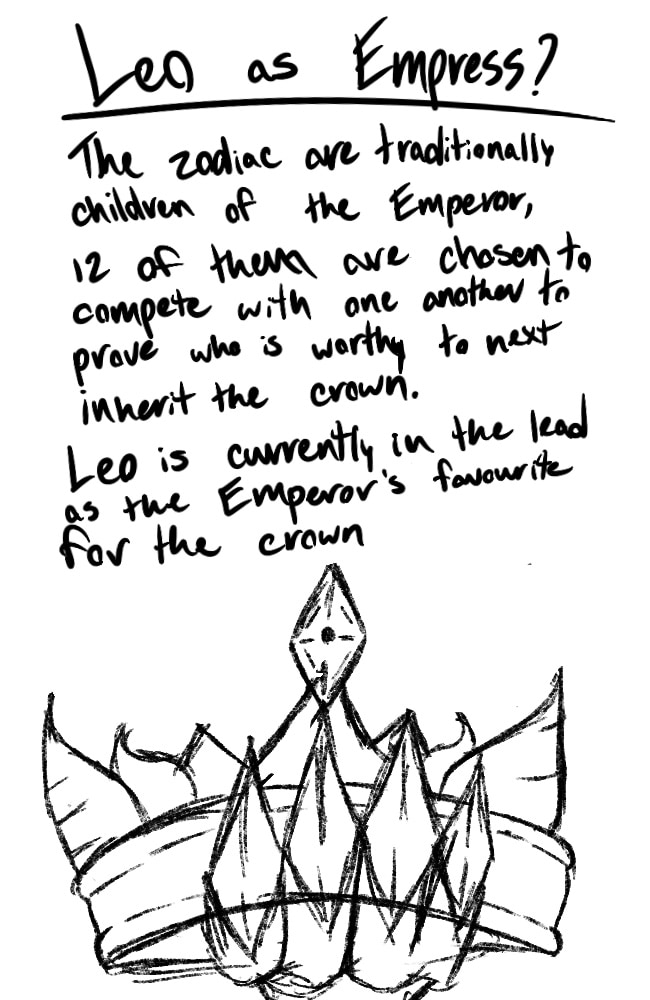 Leo as Empress?
The zodiac are traditionally
children of the Emperor,
12 of them are chosen to
compete with one another to
prove who is worthy to next
inherit the crown.
Leo is currently in the lead
as the Emperor's favourite
for the crown